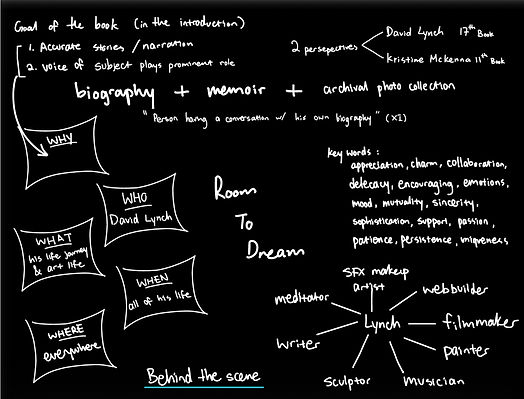 Goal of the book (in the introduction)
1. Accurate stories / narration
2. voice of subject plays prominent role
2 persepectives
David Lynch 17th Book
Kristine Mckenna 11th Book
biography + memoir + archival photo collection
"Person having a conversation w/ his own biography" (XI)
WHY
WHO
David Lynch
WHAT
his life journey
& art life
WHEN
all of his life
WHERE
everywhere
Room
To
Dream
Key words :
appreciation, charm, collaboration,
delecacy, encouraging, emotions,
mood, mutuality, sincerity,
sophistication, support, passion,
patience, persistence, uniqueness
SFX makeup
artist
webbuilder
meditator
Lynch
filmmaker
writer
painter
sculptor
musician
Behind the scene